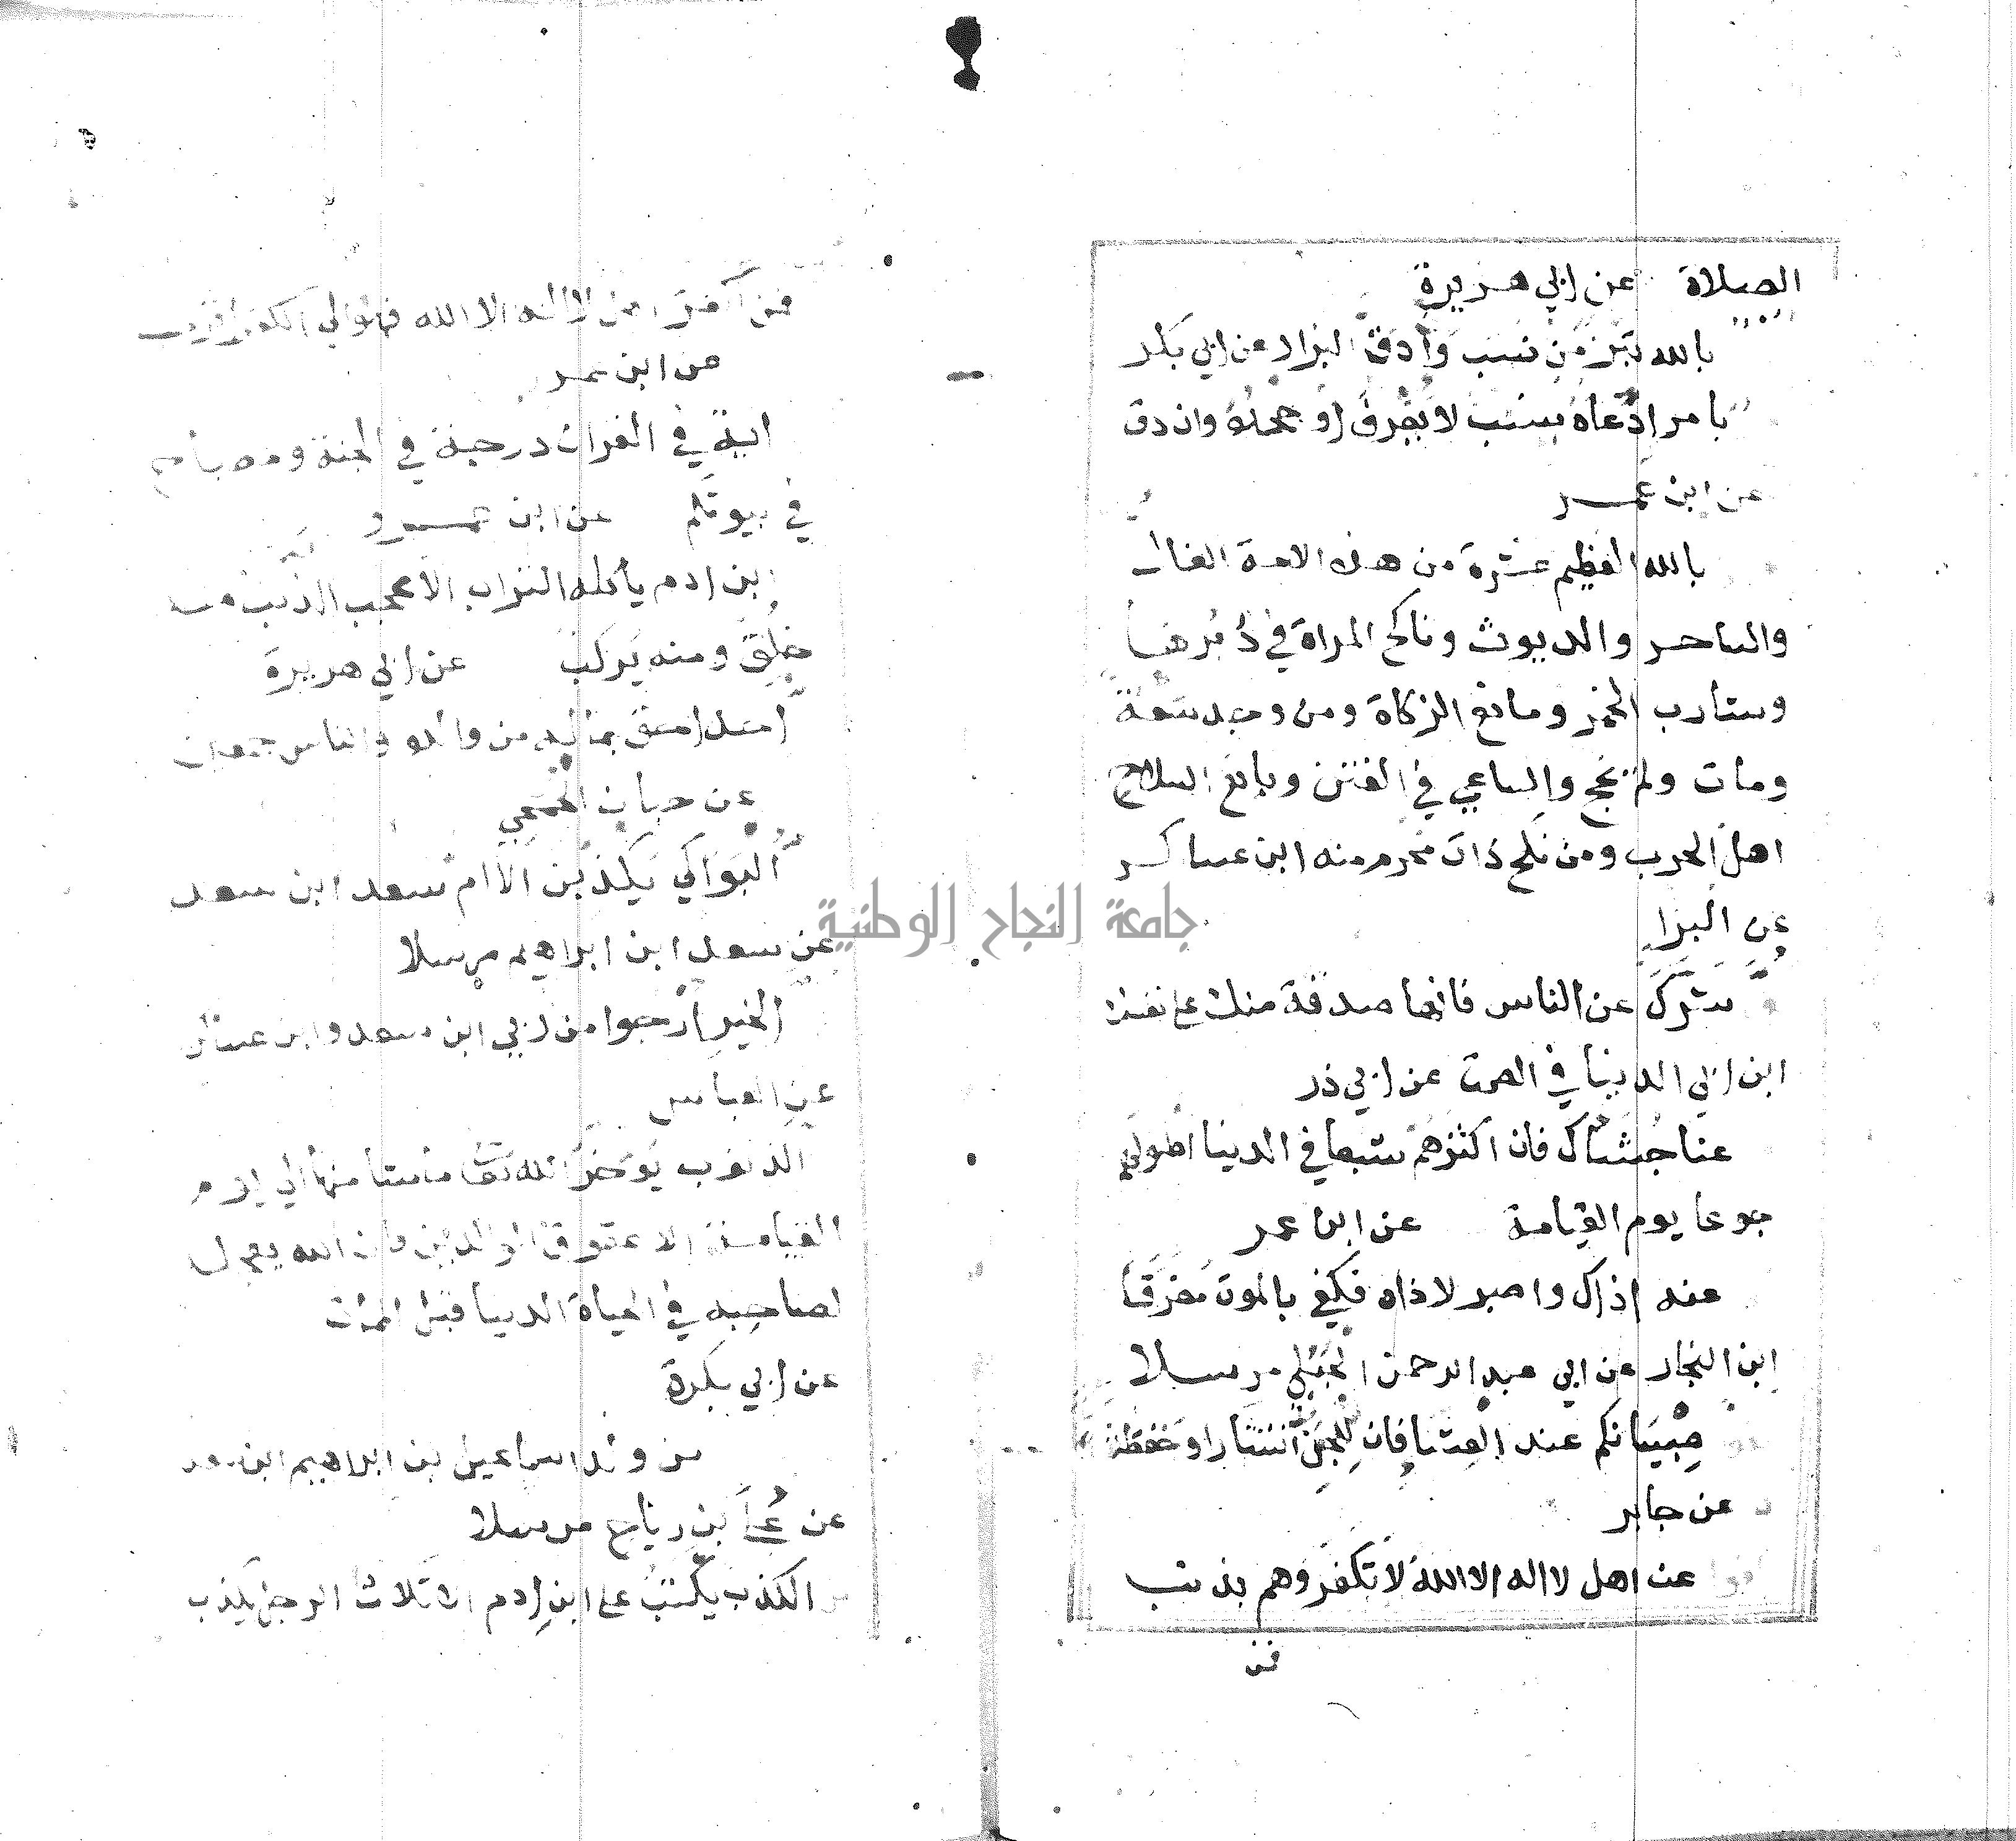 الصلاة عن ابي هريرة
بالله تبرؤ من نسب وادق البزار عن ابي بكر
بامر ادعاء نسب لا يعرف او جحده وان دق
عن ابن عمر
بالله العظيم عشرة من هذه الامة الغال
والساحر والديوث وناكح المراة في دبرها
وشارب الخمر ومانع الزكاة ومن وجد سعة
ومات ولم يحج والساعي في الفتن وبايع السلاح
اهل الحرب ومن نكح ذات محرم منه ابن عساكر
عن البرا
شرك عن الناس فانها صدقة منك على نفسك
ابن ابي الدنيا في الصمت عن ابي ذر
عنا جشاك فان اكثرهم شبعا في الدنيا اطولهم
جوعا يوم القيامة عن ابن عمر
عنه اذاك واصبر لاذاه فكفي بالموت مفرقا
ابن النجار عن ابي عبد الرحمن الحبلي مرسلا
صبيانكم عند العشا فان للجن انتشارا وخطفة
عن جابر
عن اهل لا اله الا الله لا تكفروهم بذنب
فمن
فمن اكفر اهل لا اله الا الله فهو الي الكفر اقرب
عن ابن عمر
اية في القران درجة في الجنة ومصباح
في بيوتكم عن ابن عمرو
ابن ادم يأكله التراب الا عجب الذنب منه
خلق ومنه يركب عن ابي هريرة
احد احق بماله من والده والناس اجمعين
عن حبان الجمحي
البواكي يكذبن الا ام سعد ابن سعد
عن سعد ابن ابراهيم مرسلا
الخير ارجوا من ربي ابن سعد وابن عساكر
عن العباس
الذنوب يؤخر الله تعالى ماشا منها الي يوم
القيامة الا عقوق الوالدين فان الله يعجل
لصاحبه في الحياة الدنيا قبل الممات
عن ابي بكرة
من ولد اسماعيل بن ابراهيم ابن سعد
عن علي بن رباح مرسلا
الكذب يكتب على ابن ادم الا ثلاث الرجل يكذب
جامعة النجاح الوطنية